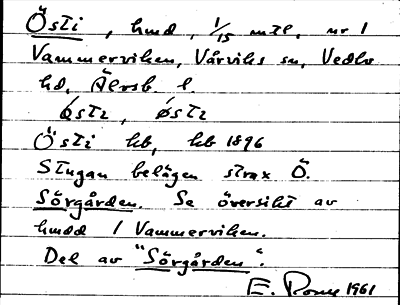 Östi, hmd, 1/15 mtl. nr 1
Vammerviken, Vårviks sn, Vedbo
hd, Älvsb. l.
östi, östi
Östi hb, hb 1896
Stugan belägen strax Ö.
Sörgården. Se översikt av
hmdd / Vammerviken.
Del av "Sörgården".
E. 1961